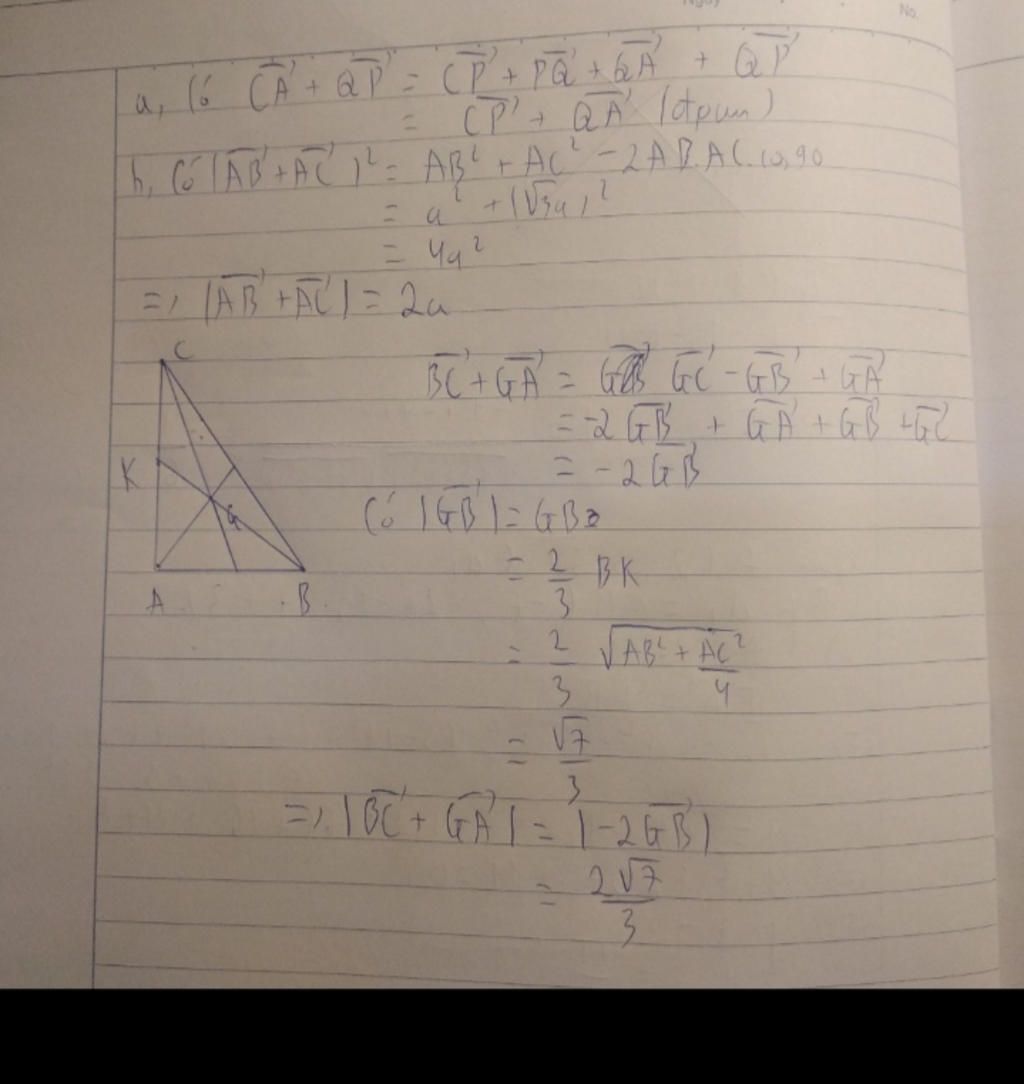 Ngày
No.
a, Có CA + QP = CP + PQ + QA + QP
= CP + QA (đpcm)
b, Có |AB + AC|² = AB² + AC² - 2AB.AC.cos90
= a² + (√3a)²
= 4a²
=> |AB + AC| = 2a
C
K
G
A
B
BC + GA = GC - GB + GA
= -2GB + GA + GB + GC
= -2GB
Có |GB| = GB
= 2/3 BK
= 2/3 √(AB² + AC²/4)
= √7/3
=> |BC + GA| = |-2GB|
= 2√7/3